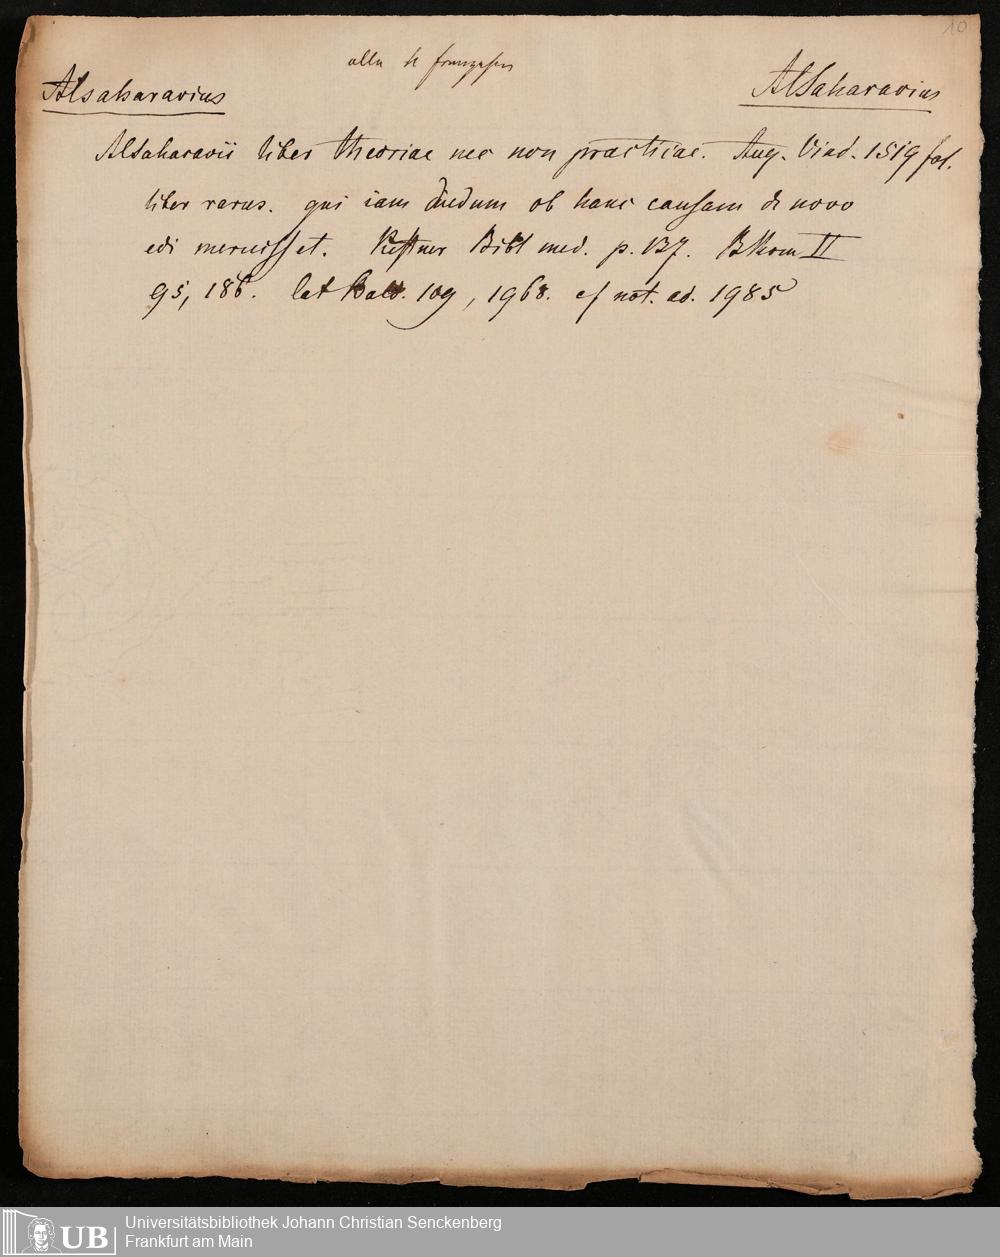 10
Alsaharavius
Alsaharavius
Alsaharavii liber theoriae nec non practicae. Aug. Vind. 1519 fol.
liber rarus. qui iam dudum ob hanc causam de novo
edi meruisset. Kestner Bibl med. p. 137. BKrom II
95, 186. Cat Bald. 109, 1968. cf not. ad. 1985
UB
Universitätsbibliothek Johann Christian Senckenberg
Frankfurt am Main